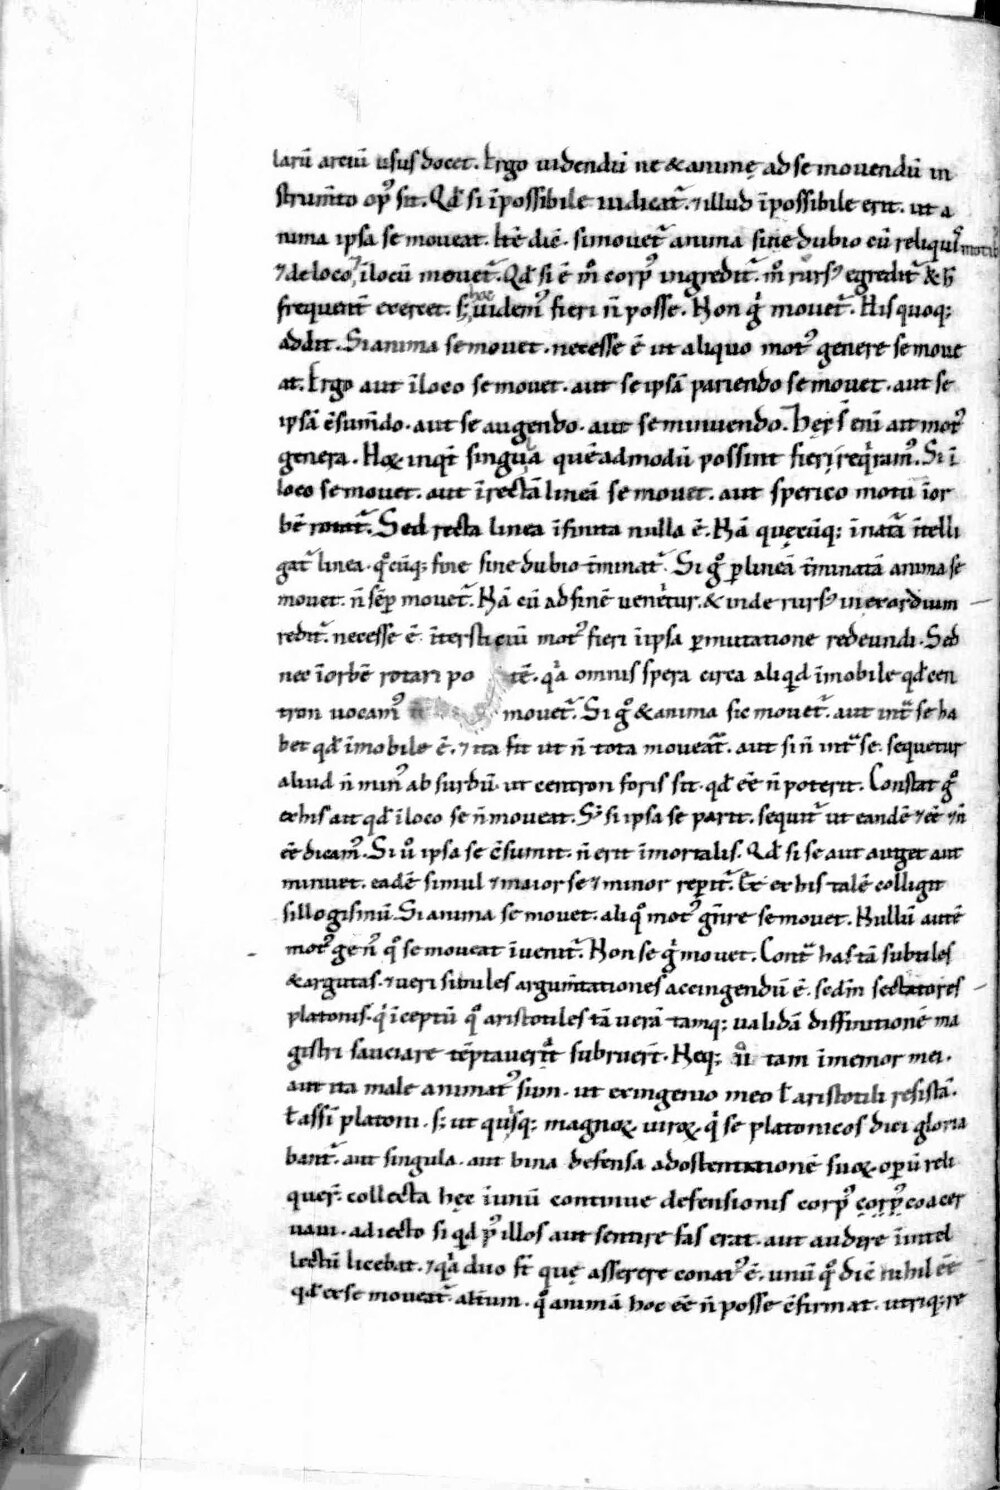 larū artiū usus docet. Ergo uidendū ne & animę ad se mouendū in
strum̄to op⁹ sit. Qđ si īpossibile iudicat᷑. ⁊ illud īpossibile erit. ut a
nima ipsa se moueat. Itē diē. si mouet᷑ anima sine dubio cū reliquis motib⁹
⁊ de loco ī locū mouet᷑. Qđ si ē m̊ corp⁹ ingredit᷑. m̊ rurs⁹ egredit᷑ & h̄
frequent̄ exercet. s; hoc uidem⁹ fieri n̄ posse. Non gͥ mouet᷑. His quoq;
addit. Si anima se mouet. necesse ē ut aliquo mot⁹ genere se moue
at. Ergo aut ī loco se mouet. aut se ipsā pariendo se mouet. aut se
ipsā c̄sum̄do. aut se augendo. aut se minuendo. Hęc s̄ eni ait mot⁹
genera. Hoꝝ inqͥt singula quēadmodū possint fieri reqͥram⁹. Si ī
loco se mouet. aut ī rectā lineā se mouet. aut sperico motu ī or
bē rotat᷑. Sed recta linea īfinita nulla ē. Nā quęcūq; ī nat᷑a ītelli
gat᷑ linea. qͦcūq; fine sine dubio t̄minat᷑. Si gͦ ꝑ lineā t̄minatā anima se
mouet. n̄ sēꝑ mouet᷑. Nā cū ad finē uenit᷑ur. & inde rurs⁹ in exordium
redit᷑. necesse ē īterstitiū mot⁹ fieri ī ipsa ꝑmutatione redeundi. Sed
nec ī orbē rotari po tē. qͥa omnis spera circa aliqͥd īmobile qđ cen
tron uocam⁹ mouet᷑. Si gͦ & anima sic mouet᷑. aut int᷑ se ha
bet qđ īmobile ē. ⁊ ita fit ut n̄ tota moueat᷑. aut si n̄ int᷑ se. sequetur
aliud n̄ min⁹ absurdū. ut centron foris sit. qđ eē n̄ poterit. Constat gͦ
ex his ait qđ ī loco se n̄ moueat. S; si ipsa se parit. sequit᷑ ut eandē ⁊ eē ⁊ n̄
eē dicam⁹. Si ů ipsa se c̄sumit. n̄ erit īmortalis. Qđ si se aut auget aut
minuet. eadē simul ⁊ maior se ⁊ minor reꝑit᷑. Et ex his talē colligit
sillogismū. Si anima se mouet. aliqͦ mot⁹ gn̄re se mouet. Nullū autē
mot⁹ gen⁹ qͦ se moueat īuenit᷑. Non se gͥ mouet. Cont᷑ has tā subtiles
& argutas. ⁊ ueri similes argum̄tationes accingendū ē. sedm̄ sectatores
platonis. qͥ īceptū qͦ aristotiles tā uerā tamq; ualidā diffinitionē ma
gistri sauciare tēptauerit subruert̄. Neq; ů tam īmemor mei.
aut ita male animat⁹ sum. ut ex ingenio meo ł aristotili resistā.
ł assī platoni. s; ut qͥsq; magnoꝝ uiroꝝ. qͥ se platonicos dici gloria
bant᷑. aut singula. aut bina defensa ad ostentationē suoꝝ. operū reli
quer̄. collecta hęc ī unū continue defensionis corp⁹ coacer
uaui. adiecto si qͥd p⁹ illos aut sentire fas erat. aut audire ī intel
lectū licebat. ⁊ qͥa duo sͭ que asserere conat⁹ ē. unū qͦ diē nihil eē
qđ ex se moueat᷑. alt̄um. qͦ animā hoc eē n̄ posse c̄firmat. utriq; re